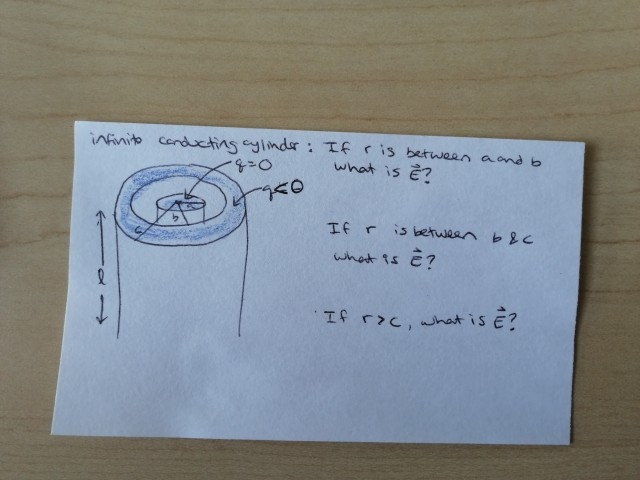 infinite conducting cylinder: If r is between a and b
what is E⃗?
q=0
q<0
a
b
c
l
If r is between b & c
what is E⃗?
If r>c, what is E⃗?